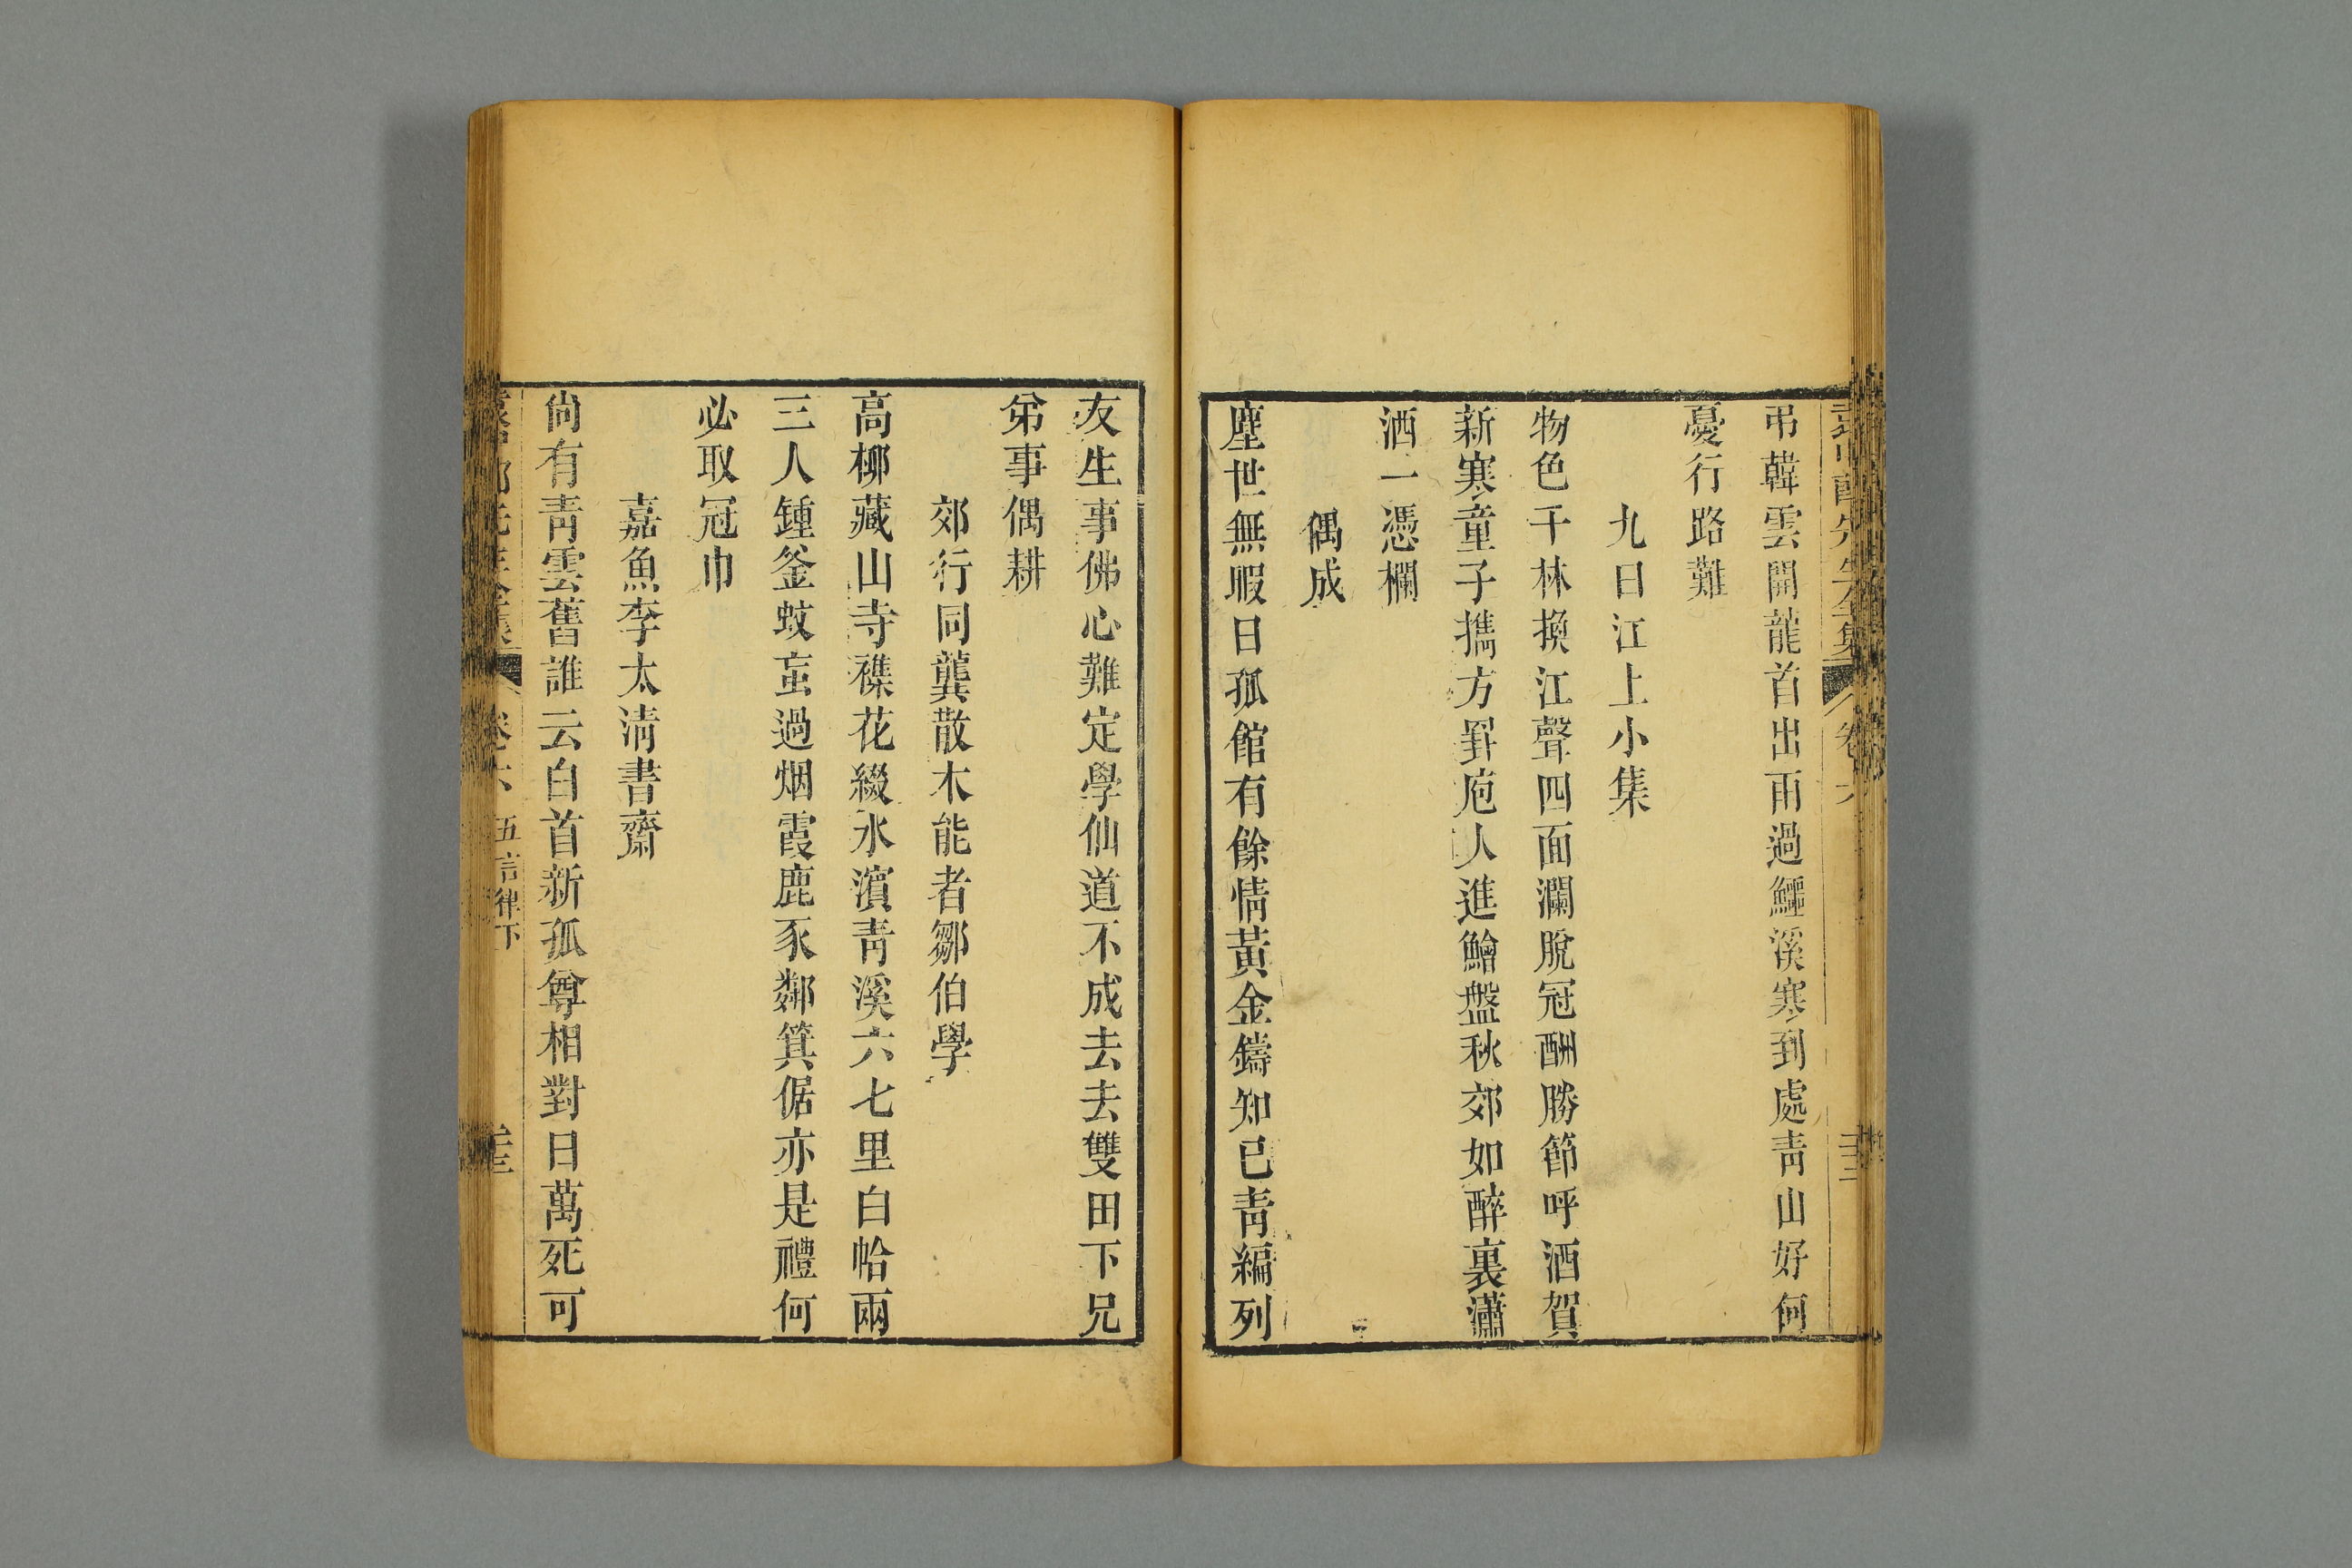 弔韓雲開龍首出雨過鱷溪寒到處靑山好何
憂行路難
九日江上小集
物色千林換江聲四面瀾脫冠酬勝節呼酒賀
新寒童子攜方罫庖人進鱠盤秋郊如醉裏瀟
洒一憑欄
偶成
塵世無暇日孤館有餘情黃金鑄知已靑編列
友生事佛心難定學仙道不成去去雙田下兄
弟事偶耕
郊行同龔散木能者鄒伯學
高柳藏山寺襍花綴水濵靑溪六七里白帢兩
三人鍾釜蚊䖟過烟霞鹿豕鄰箕倨亦是禮何
必取冠巾
嘉魚李太淸書齋
尙有靑雲舊誰云白首新孤尊相對日萬死可
卷六 五言律下